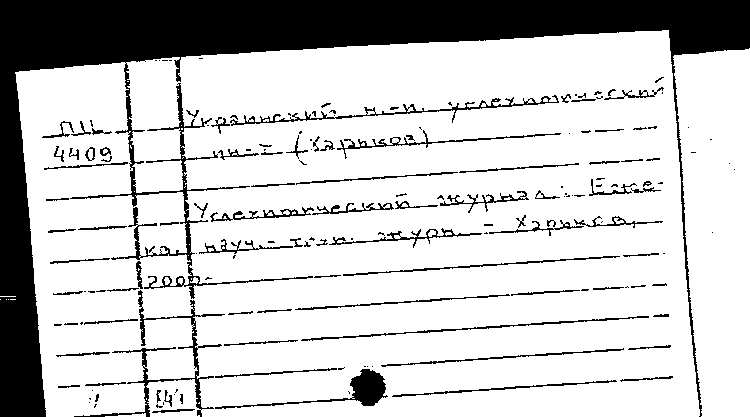 ПЦ Украинский н.-и. углехимический
4409 ин-т (Харьков)
Углехимический журнал: Еже-
кв. науч.-техн. журн. - Харьков,
2000-